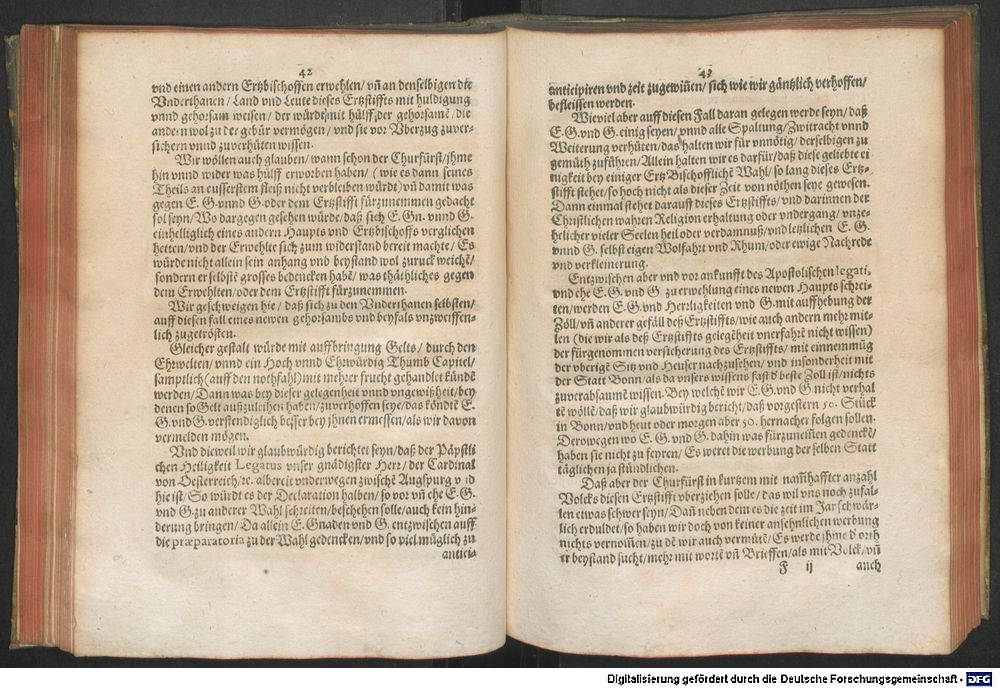 42
vnd einen andern Ertzbischoffen erwehlen/ vñ an denselbigen die
Vnderthanen/ Land vnd Leute dieses Ertzstiffts mit huldigung
vnnd gehorsam weisen/ der würdt mit hülff der gehorsamẽ/ die
andern wol zu der gebür vermögen/ vnd sie vor Vberzug zuver-
sichern vnnd zuverhüten wissen.
Wir wöllen auch glauben/ wann schon der Churfürst/ jhme
hin vnnd wider was hülff erworben haben/ (wie es dann seines
Theils an eusserstem fleiß nicht verbleiben würdt) vñ damit was
gegen E. G. vnnd G. oder dem Ertzstifft fürzunemmen gedacht
sol seyn/ Wo dargegen gesehen würde/ daß sich E. Gn. vnnd G.
einhelliglich eines andern Haupts vnd Ertzbischoffs verglichen
hetten/ vnd der Erwehlte sich zum widerstand bereit machte/ Es
würde nicht allein sein anhang vnd beystand wol zuruck weichẽ/
sondern er selbstẽ grosses bedencken habẽ/ was thäthliches gegen
dem Erwehlten/ oder dem Ertzstifft fürzunemmen.
Wir geschweigen hie/ daß sich zu den Vnderthanen selbsten/
auff diesen fall eines newen gehorsambs vnd beyfals vnzweiffen-
lich zugetrösten.
Gleicher gestalt würde mit auffbringung Gelts/ durch den
Ehrwelten/ vnnd ein Hoch vnnd Ehrwürdig Thumb Capitel/
samptlich (auff den nothfahl) mit mehrer frucht gehandlet kündẽ
werden/ Dann was bey dieser gelegenheit vnnd vngewißheit/ bey
denen so Gelt außzuleihen haben/ zuverhoffen seye/ das köndtẽ E.
G. vnd G. verstendiglich besser bey jhnen ermessen/ als wir davon
vermelden mögen.
Vnd dieweil wir glaubwürdig berichtet seyn/ daß der Päpstli-
chen Heiligkeit Legatus vnser gnädigster Herr/ der Cardinal
von Oesterreich/ ꝛc. albereit vnderwegen zwischẽ Augspurg vnd
hie ist/ So würdt es der Declaration halben/ so vor vñ ehe E. G.
vnd G. zu anderer Wahl schreiten/ beschehen solle/ auch kein hin-
derung bringen/ Da allein E. Gnaden vnd G. entzwischen auff
die præparatoria zu der Wahl gedencken/ vnd so viel müglich zu
antici-
43
anticipiren vnd zeit zugewiñen/ sich wie wir gäntzlich verhoffen/
befleissen werden.
Wieviel aber auff diesen Fall daran gelegen werde seyn/ daß
E. G. vnd G. einig seyen/ vnnd alle Spaltung/ Zwitracht vnnd
Weiterung verhüten/ das halten wir für vnnötig/ derselbigen zu
gemüth zuführen/ Allein halten wir es darfür/ daß diese geliebte ei
nigkeit bey einiger Ertz Bischofflichẽ Wahl/ so lang dieses Ertz-
stifft stehet/ so hoch nicht als dieser Zeit von nöthen seye gewesen.
Dann einmal stehet darauff dieses Ertzstiffts/ vnd darinnen der
Christlichen wahren Religion erhaltung oder vndergang/ vnze-
helicher vieler Seelen heil oder verdamnuß/ vnd letzlichen E. G.
vnnd G. selbst eigen Wolfahrt vnd Rhum/ oder ewige Nachrede
vnd verkleinerung.
Entzwischen aber vnd vor ankunfft des Apostolischen legati,
vnd ehe E. G. vnd G. zu erwehlung eines newen Haupts schrei-
ten/ werden E. G. vnd Herrligkeiten vnd G. mit auffhebung der
Zöll/ vñ anderer gefäll deß Ertzstiffts/ wie auch andern mehr mit-
len (die wir als deß Ertzstiffts gelegẽheit vnerfahrẽ nicht wissen)
der fürgenommen versicherung des Ertzstiffts/ mit einnemmũg
der vberigẽ Sitz vnd Heuser nachzusehen/ vnd in sonderheit mit
der Statt Bonn/ als da vnsers wissens fast ď beste Zoll ist/ nichts
zuverabsaumẽ wissen. Bey welchẽ wir E. G. vnd G. nicht verhal
tẽ wöllẽ/ daß wir glaubwürdig bericht/ daß vorgestern 50. Stück
in Bonn/ vnd heut oder morgen aber 50. hernacher folgen sollen.
Derowegen wo E. G. vnd G. dahin was fürzunem̃en gedenckẽ/
haben sie nicht zu feyren/ Es weret die werbung der selben Statt
täglichen ja stündlichen.
Daß aber der Churfürst in kurtzem mit nam̃haffter anzahl
Volcks diesen Ertzstifft vberziehen solle/ das wil vns noch zufal-
len etwas schwer seyn/ Dañ neben dem es die zeit im Jar schwär-
lich erduldet/ so haben wir doch von keiner ansehnlichen werbung
nichts vernom̃en/ zu dẽ wir auch vermutẽ/ Es werde jhme ď orth
er beystand sucht/ mehr mit wortẽ vñ Brieffen/ als mit Volck/ vñ
F ij auch
Digitalisierung gefördert durch die Deutsche Forschungsgemeinschaft - DFG